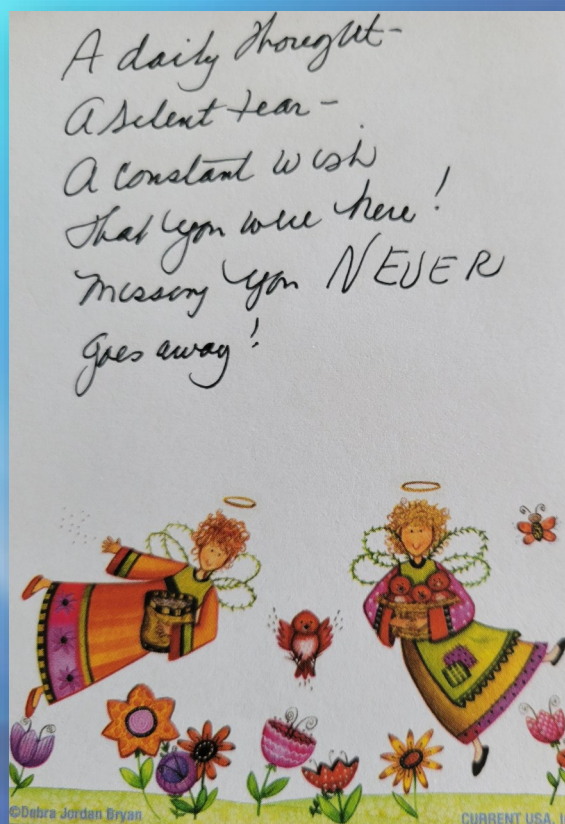 A daily thought-
A silent tear-
A constant wish
that you were here!
missing you NEVER
goes away!
©Debra Jordan Bryan
CURRENT USA, I